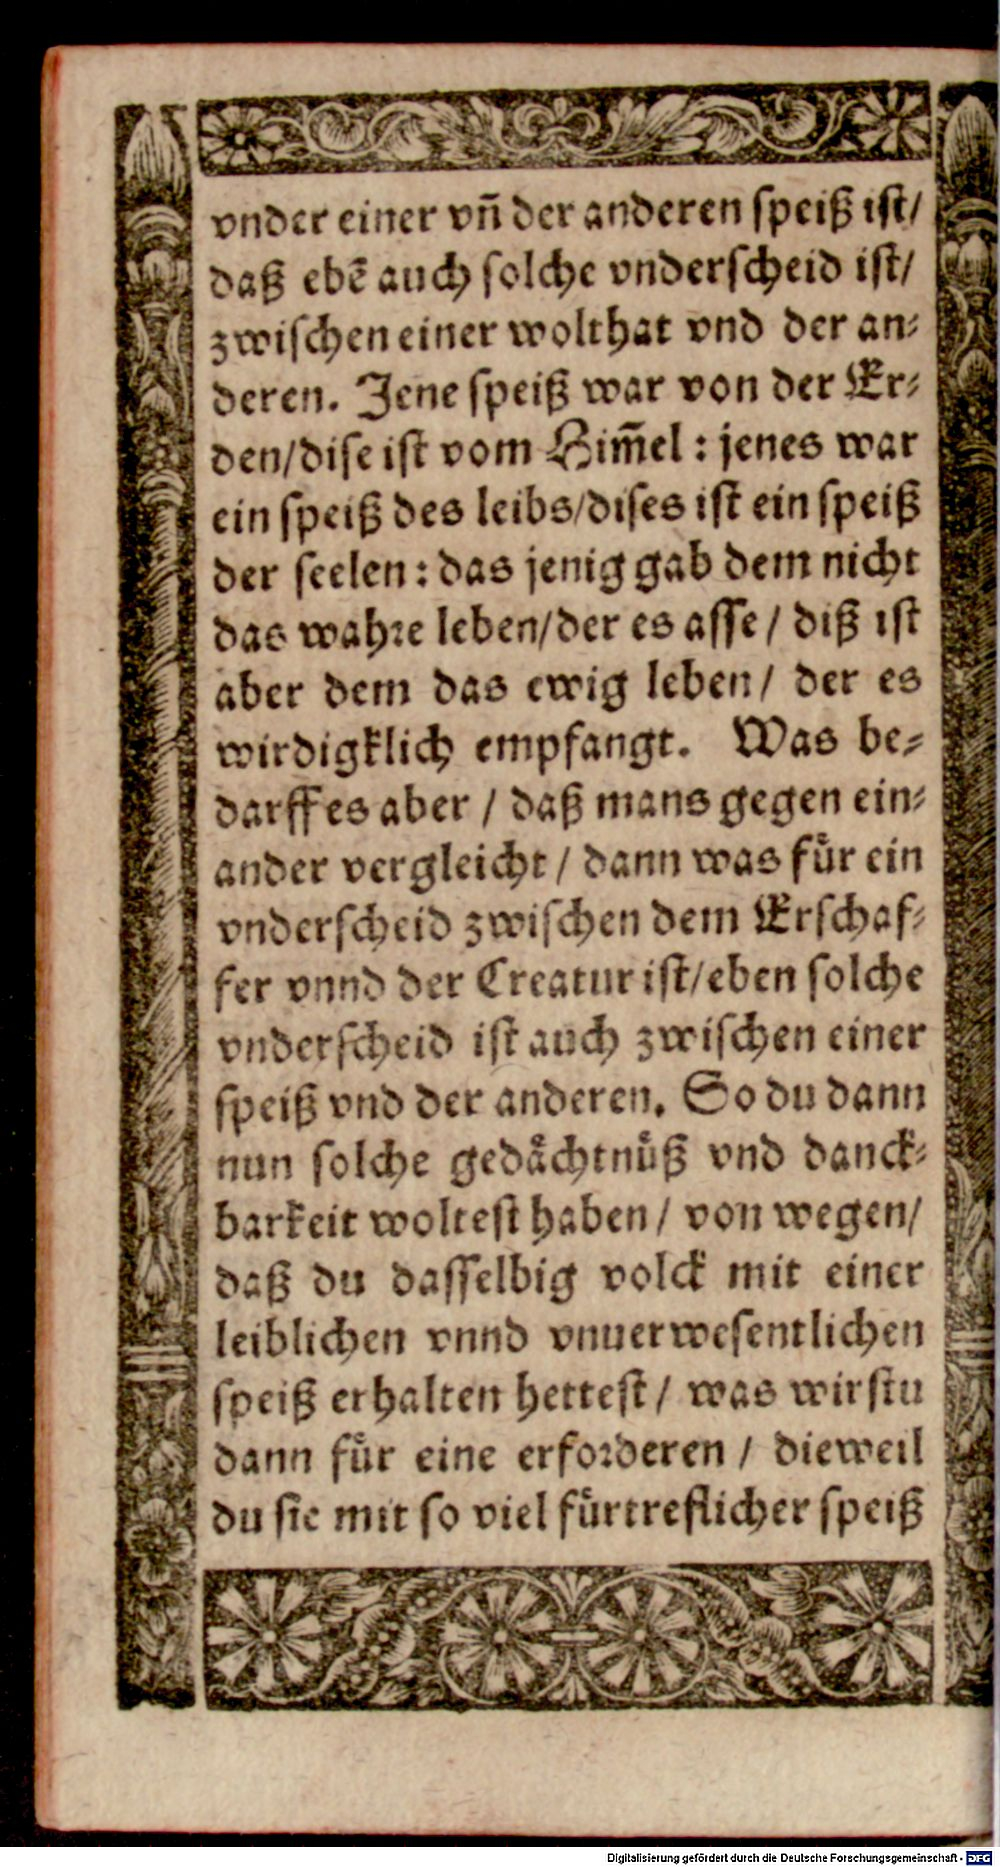 vnder einer vn̄ der anderen speiß ist/
daß ebē auch solche vnderscheid ist/
zwischen einer wolthat vnd der an⸗
deren. Jene speiß war von der Er⸗
den/dise ist vom Him̄el : jenes war
ein speiß des leibs/dises ist ein speiß
der seelen : das jenig gab dem nicht
das wahre leben/der es asse / diß ist
aber dem das ewig leben / der es
wirdigklich empfangt. Was be⸗
darff es aber / daß mans gegen ein⸗
ander vergleicht / dann was fuͤr ein
vnderscheid zwischen dem Erschaf⸗
fer vnnd der Creatur ist/eben solche
vnderscheid ist auch zwischen einer
speiß vnd der anderen. So du dann
nun solche gedaͤchtnuͤß vnd danck⸗
barkeit woltest haben / von wegen/
daß du dasselbig volck mit einer
leiblichen vnnd vnuerwesentlichen
speiß erhalten hettest / was wirstu
dann fuͤr eine erforderen / dieweil
du sie mit so viel fuͤrtreflicher speiß
Digitalisierung gefördert durch die Deutsche Forschungsgemeinschaft - DFG